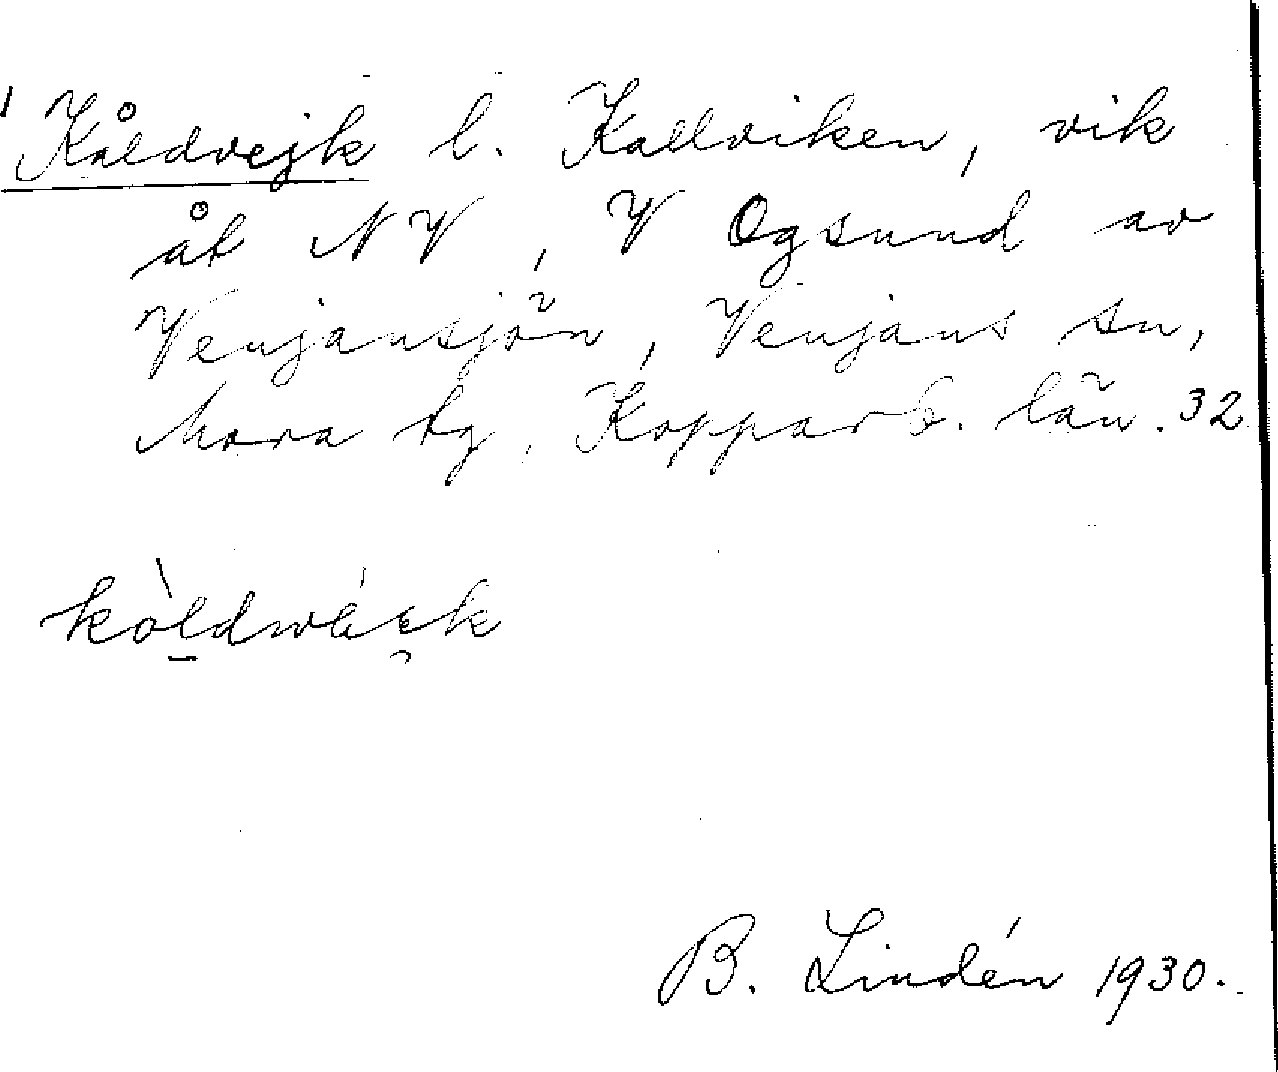 Kåldvejk l. Kallviken, vik
åt NV, V Ogsund av
Venjansjön, Venjans sn,
Mora tg, Kopparb. län. 32
B. Lindén 1930.